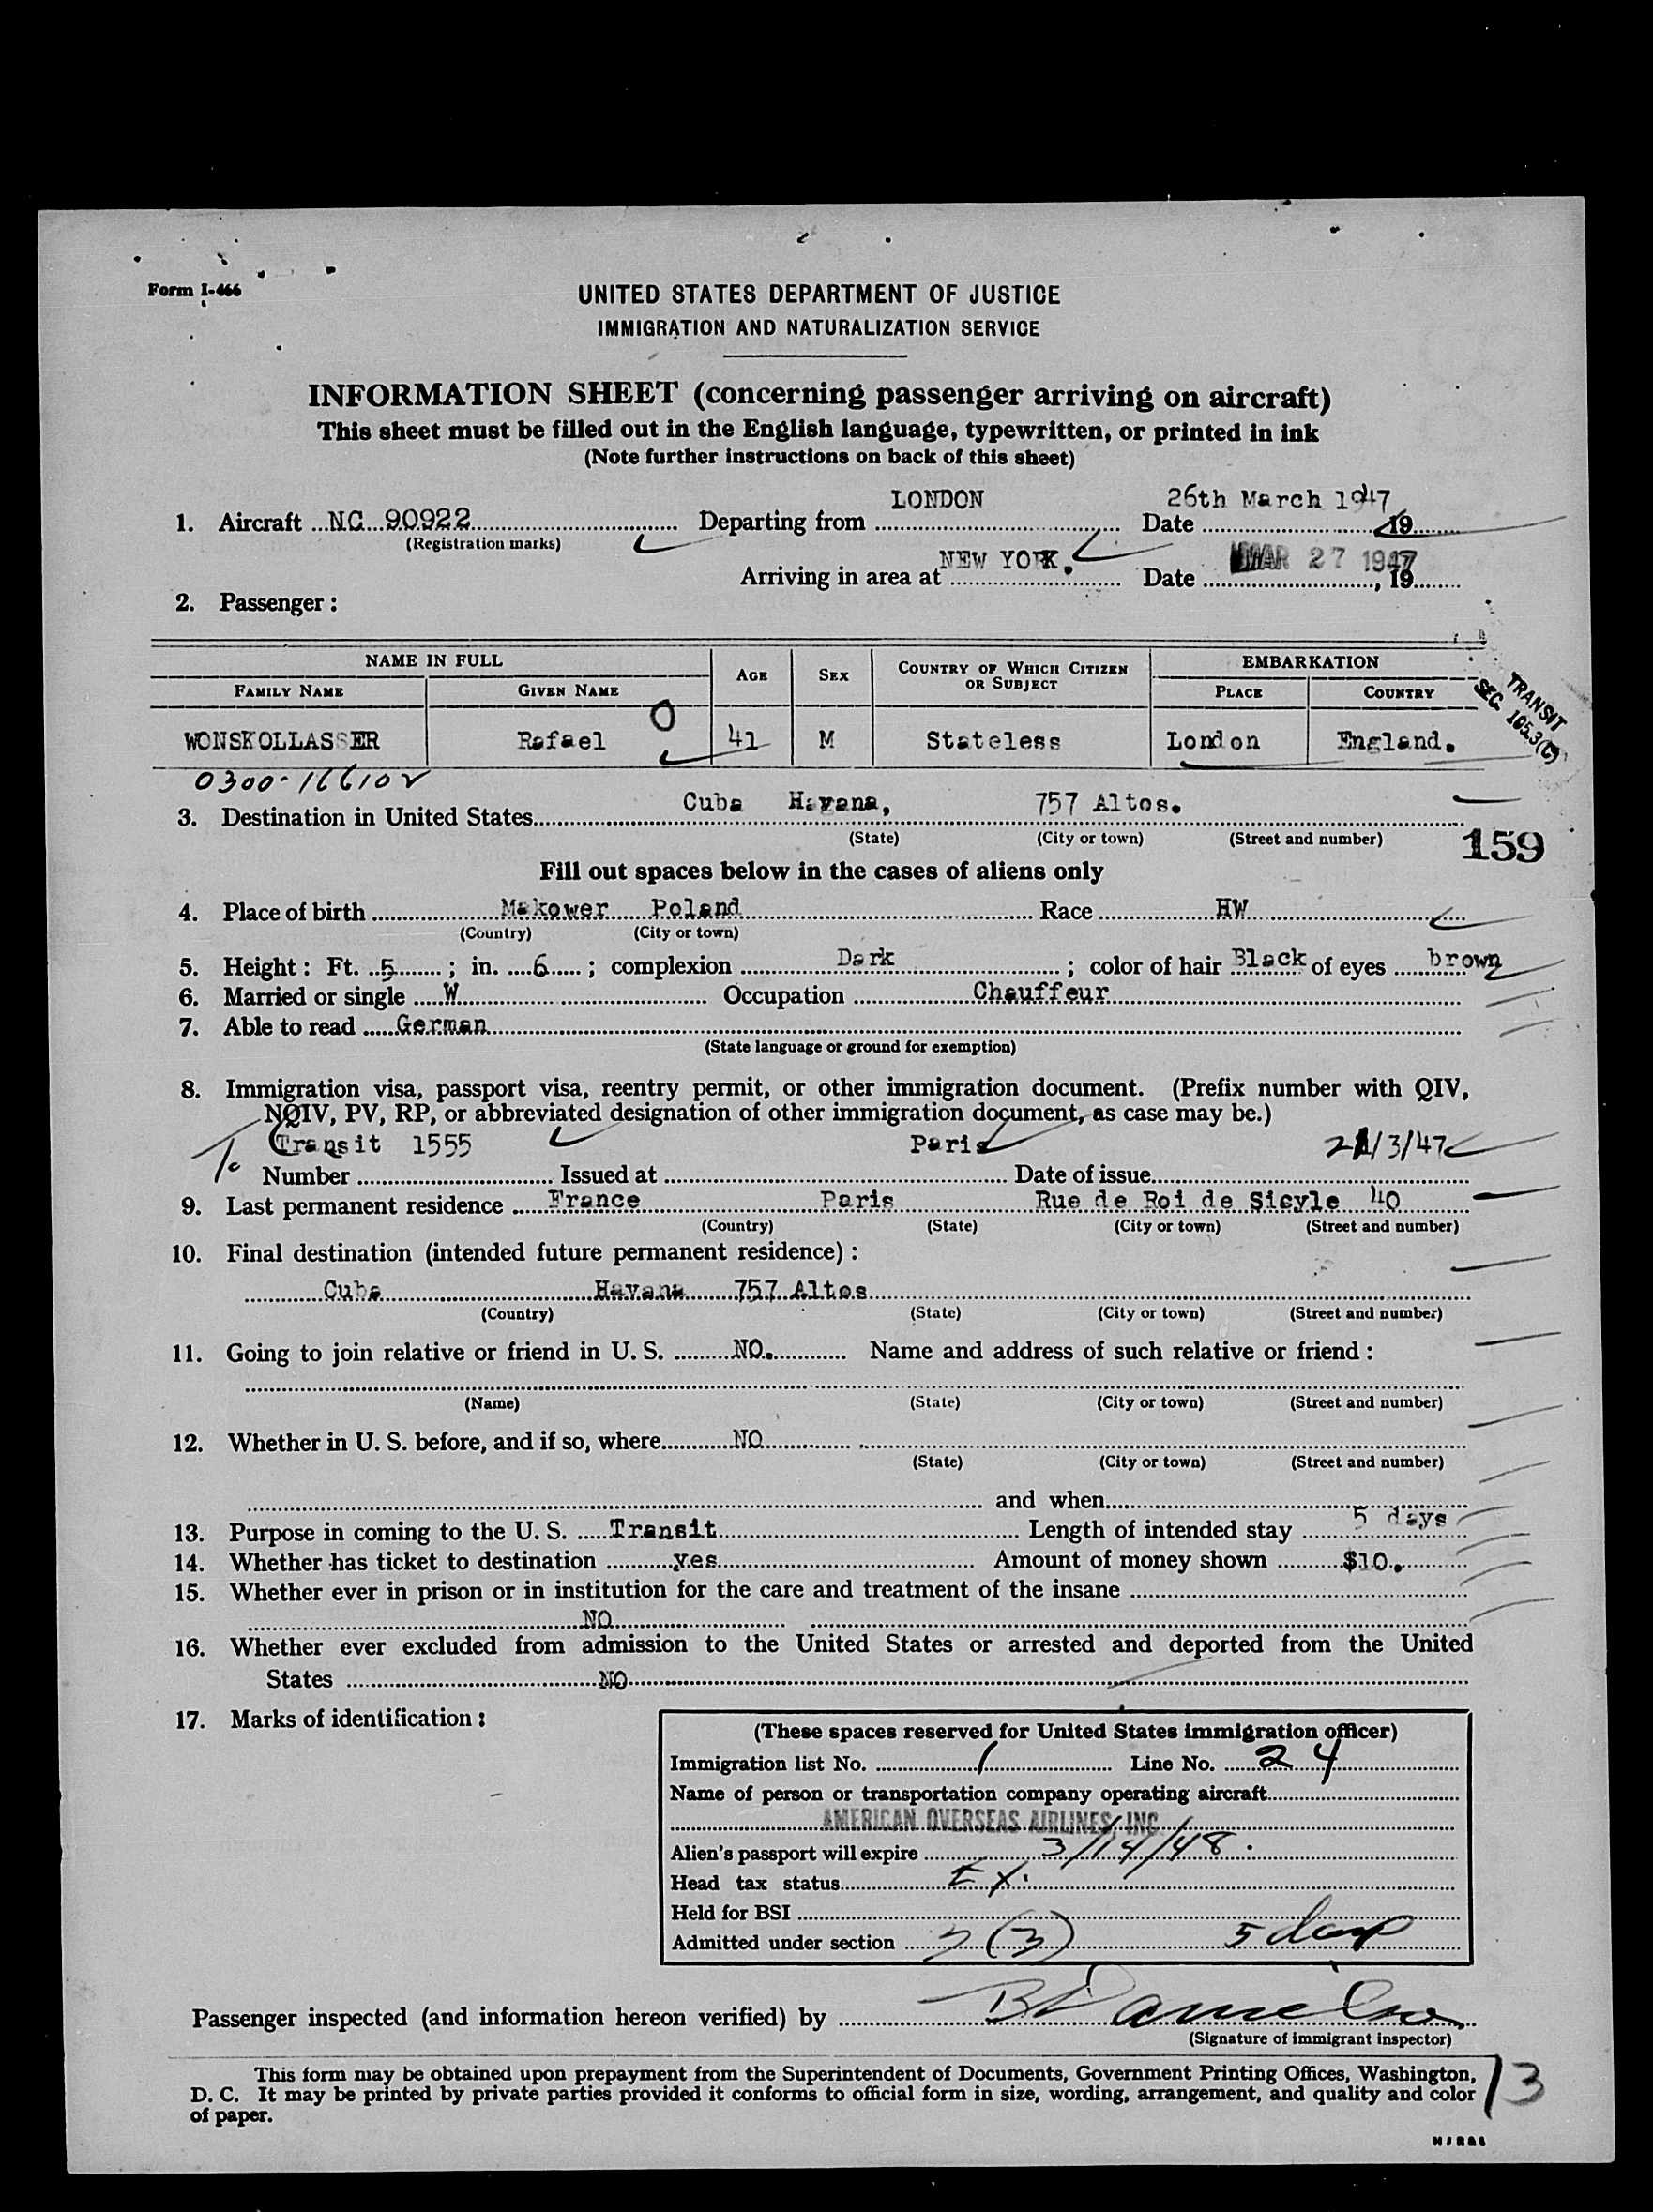 Form I-466
UNITED STATES DEPARTMENT OF JUSTICE
IMMIGRATION AND NATURALIZATION SERVICE
INFORMATION SHEET (concerning passenger arriving on aircraft)
This sheet must be filled out in the English language, typewritten, or printed in ink
(Note further instructions on back of this sheet)
1. Aircraft NC 90922 Departing from LONDON Date 26th March 1947 19
(Registration marks)
Arriving in area at NEW YORK. Date MAR 27 1947, 19
2. Passenger:
NAME IN FULL AGE SEX COUNTRY OF WHICH CITIZEN OR SUBJECT EMBARKATION
FAMILY NAME GIVEN NAME PLACE COUNTRY
TRANSIT
SEC. 105.3(C)
WONSKOLLASSER Rafael O 41 M Stateless London England.
0300-16610
3. Destination in United States Cuba Havana, 757 Altos.
(State) (City or town) (Street and number)
159
Fill out spaces below in the cases of aliens only
4. Place of birth Makower Poland Race HW
(Country) (City or town)
5. Height: Ft. 5; in. 6; complexion Dark; color of hair Black of eyes brown
6. Married or single W Occupation Chauffeur
7. Able to read German
(State language or ground for exemption)
8. Immigration visa, passport visa, reentry permit, or other immigration document. (Prefix number with QIV,
NQIV, PV, RP, or abbreviated designation of other immigration document, as case may be.)
Transit 1555 Paris 21/3/47
Number Issued at Date of issue
9. Last permanent residence France Paris Rue de Roi de Sicyle 40
(Country) (State) (City or town) (Street and number)
10. Final destination (intended future permanent residence):
Cuba Havana 757 Altos
(Country) (State) (City or town) (Street and number)
11. Going to join relative or friend in U. S. NO. Name and address of such relative or friend:
(Name) (State) (City or town) (Street and number)
12. Whether in U. S. before, and if so, where NO
(State) (City or town) (Street and number)
and when
13. Purpose in coming to the U. S. Transit Length of intended stay 5 days
14. Whether has ticket to destination yes Amount of money shown $10.
15. Whether ever in prison or in institution for the care and treatment of the insane
NO
16. Whether ever excluded from admission to the United States or arrested and deported from the United
States NO
17. Marks of identification:
(These spaces reserved for United States immigration officer)
Immigration list No. 1 Line No. 24
Name of person or transportation company operating aircraft
AMERICAN OVERSEAS AIRLINES, INC.
Alien's passport will expire 3/14/48.
Head tax status Ex.
Held for BSI
Admitted under section 3(3) 5 days
Passenger inspected (and information hereon verified) by
(Signature of immigrant inspector)
This form may be obtained upon prepayment from the Superintendent of Documents, Government Printing Offices, Washington,
D. C. It may be printed by private parties provided it conforms to official form in size, wording, arrangement, and quality and color
of paper.
13